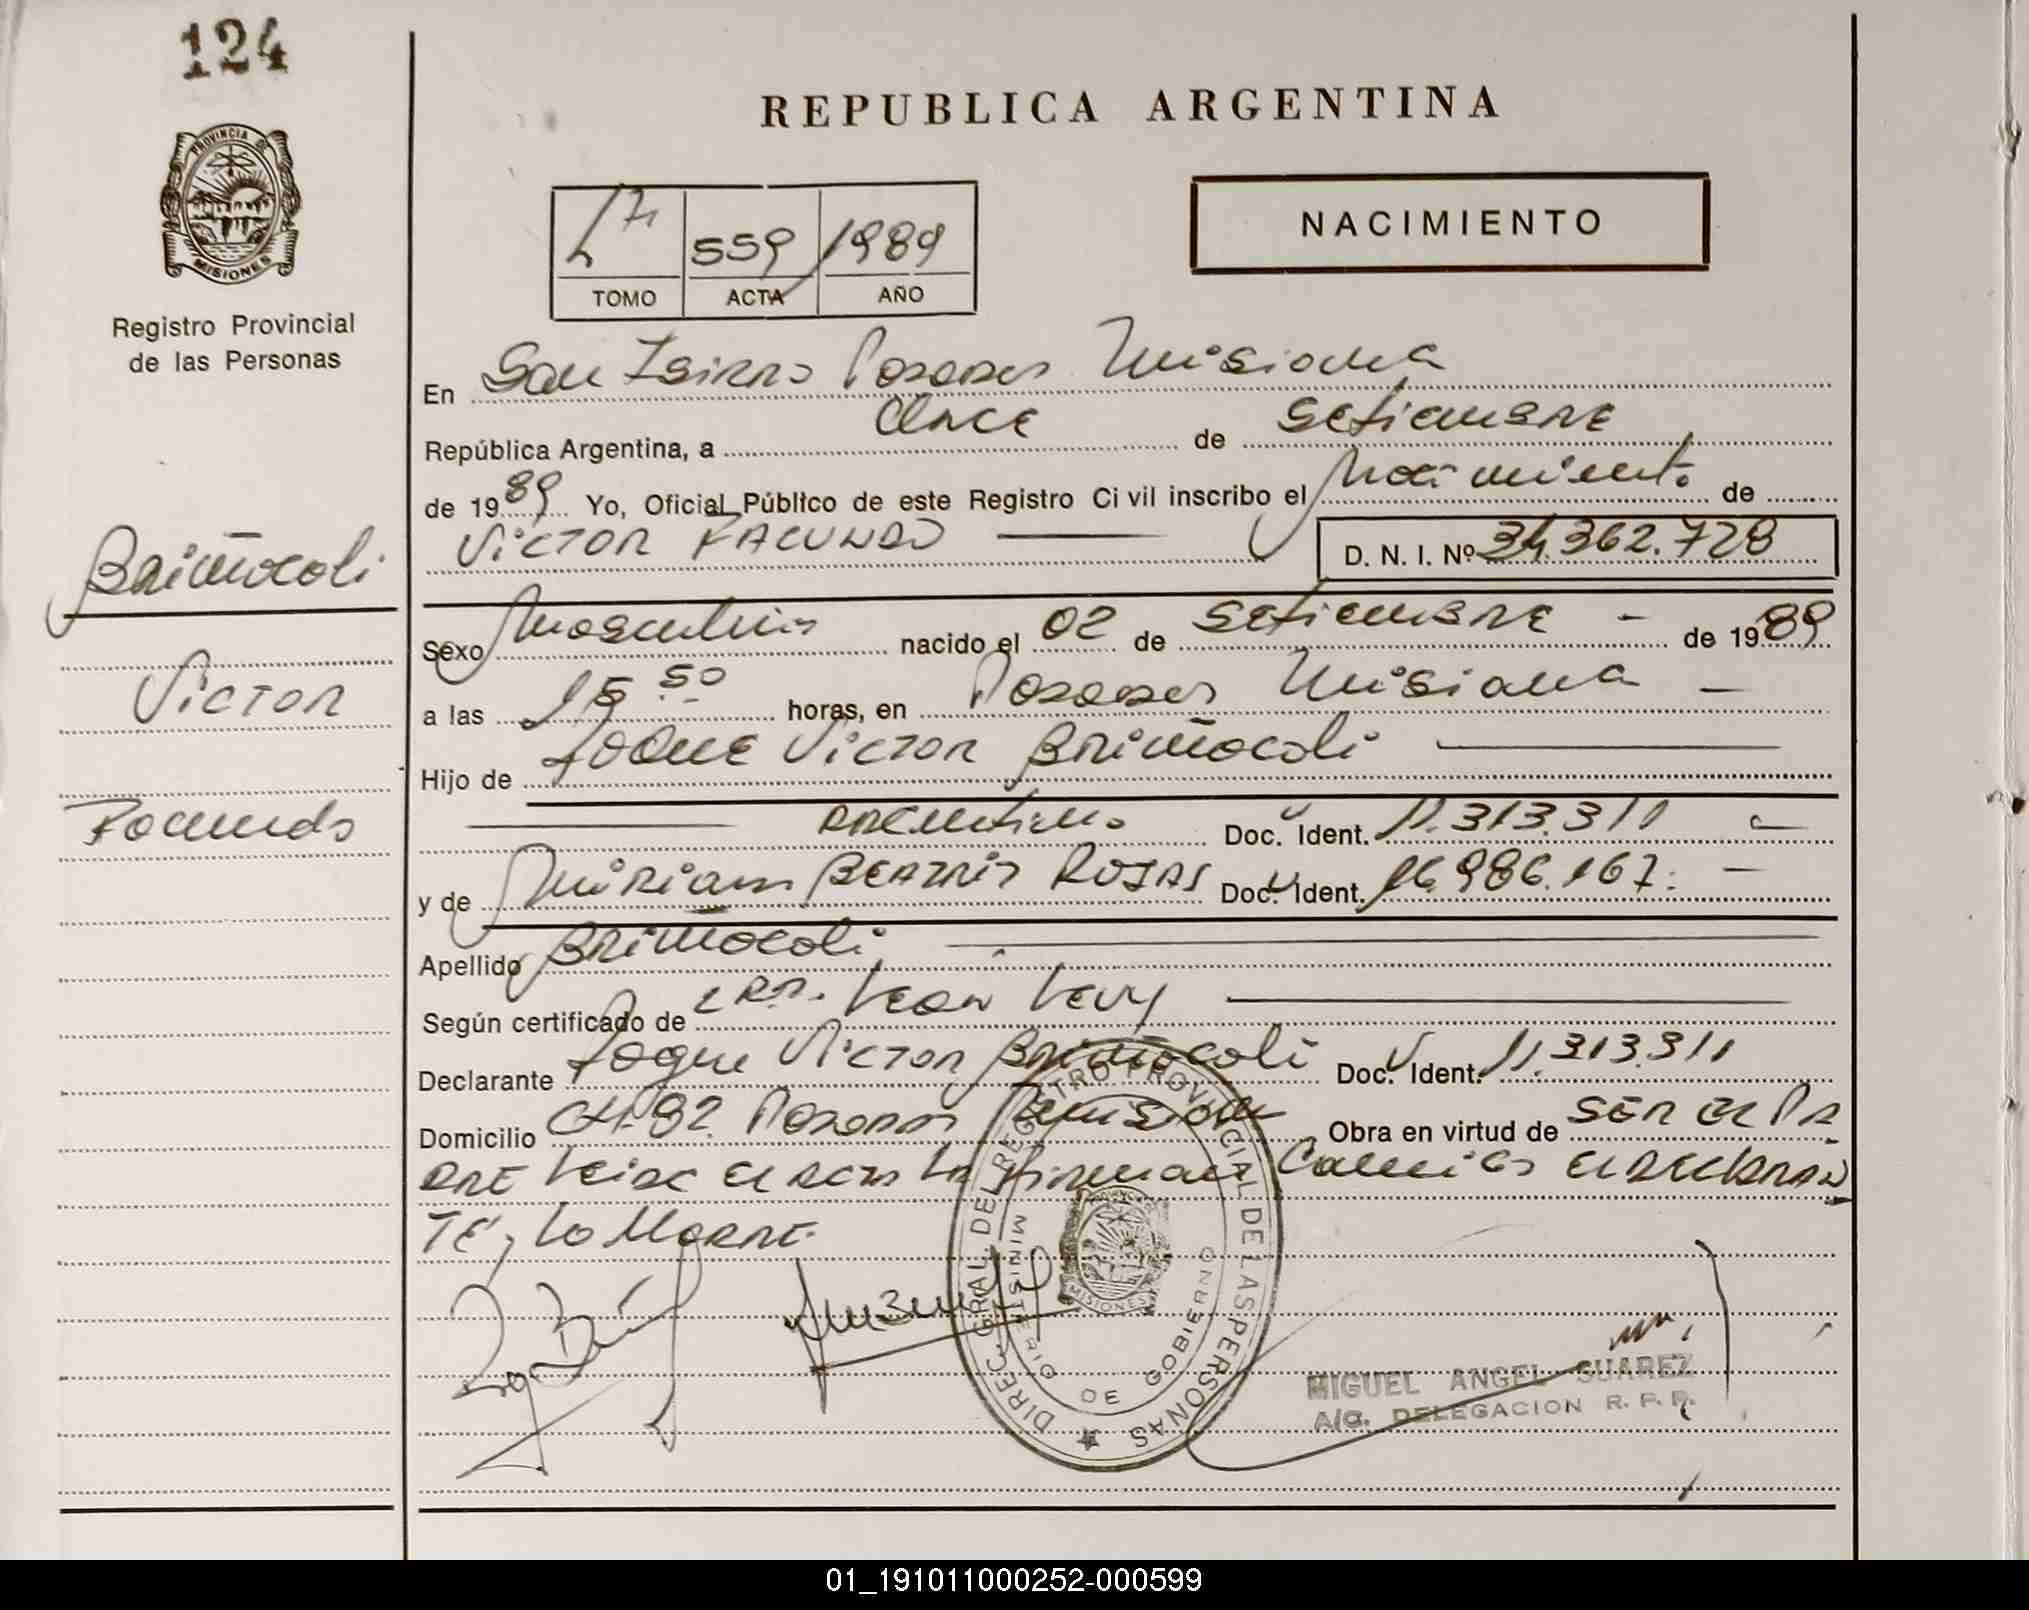 124
PROVINCIA DE
MISIONES
Registro Provincial
de las Personas
REPUBLICA ARGENTINA
NACIMIENTO
559 1989
TOMO ACTA AÑO
En San Isidro Posadas Misiones
República Argentina, a Once de Setiembre
de 1989 Yo, Oficial Público de este Registro Civil inscribo el Nacimiento de
VICTOR FACUNDO D. N. I. Nº 34.362.728
Briñocoli
Victor
Facundo
Sexo Masculino nacido el 02 de Setiembre - de 1989
a las 15 50 horas, en Posadas Misiones -
Hijo de Roque Victor Briñocoli
Argentino Doc. Ident. 11.313.311
y de Miriam Beatriz Rojas Doc. Ident. 16.986.167. -
Apellido Briñocoli
Según certificado de Leon Levy
Declarante Roque Victor Briñocoli Doc. Ident. 11.313.311
Domicilio CH. 92 Posadas Misiones Obra en virtud de ser el Pa
dre Leida el acta la firman Conmigo el declaran
te y la Madre.
DIREC. GRAL. DEL REGISTRO PROVINCIAL DE LAS PERSONAS
MINISTERIO DE GOBIERNO
MISIONES
MIGUEL ANGEL SUAREZ
A/C. DELEGACION R. P. P.
01_191011000252-000599